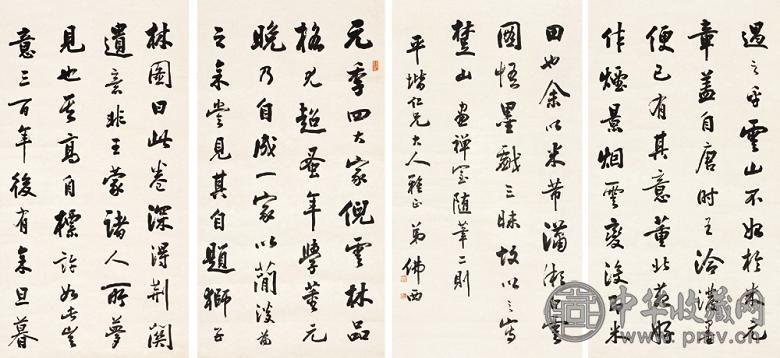 元季四大家倪雲林品
格尤超蚤年學董元
晚乃自成一家以簡淡為
之余嘗見其自題獅子
林圖曰此卷深得荊關
遺意非王蒙諸人所夢
見也其高自標許如此豈
意三百年後有余旦暮
遇之乎雲山不始於米元
章蓋自唐時王洽潑墨
便已有其意董北苑好
作煙景烟雲變沒即米
田也余以米芾瀟湘白雲
圖悟墨戲三昧故以之寫
楚山 畫禪室隨筆二則
平階仁兄大人雅正 弟佛西
中华收藏网